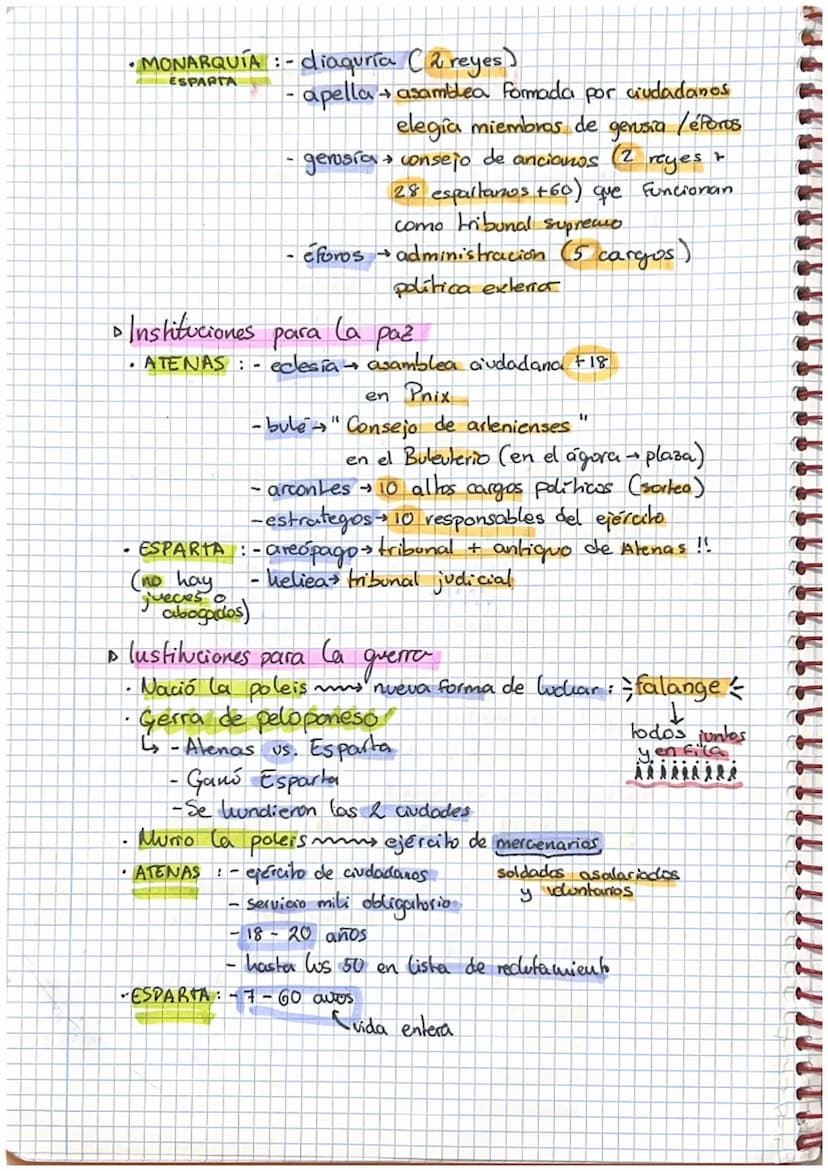 · MONARQUÍA :- diaquría (2 reyes)
ESPARTA
- apella → asamblea formada por ciudadanos
elegía miembros de gerusia /éforos
- gerusía → consejo de ancianos (2 reyes +
28 espartanos +60) que funcionan
como tribunal supremo
- éforos → administración (5 cargos)
política exterior
▷ Instituciones para la paz
· ATENAS : - eclesía → asamblea ciudadana +18
en Pnix
- bulé → "Consejo de atenienses"
en el Buleuterio (en el ágora → plaza)
- arcontes → 10 altos cargos políticos (sorteo)
- estrategos → 10 responsables del ejército
· ESPARTA : - areópago → tribunal + antiguo de Atenas !!
(no hay - heliea → tribunal judicial
jueces o
abogados)
▷ Instituciones para la guerra
· Nació la poleis ⟿ nueva forma de luchar : falange
↓
· Gerra de peloponeso
todos juntos
y en fila
↳ - Atenas vs. Esparta
- Ganó Esparta
- Se hundieron las 2 ciudades
· Murio la poleis ⟿ ejército de mercenarios
soldados asalariados
y voluntarios
· ATENAS : - ejército de ciudadanos
- servicio mili obligatorio
- 18 - 20 años
- hasta los 50 en lista de reclutamiento
· ESPARTA : - 7 - 60 años
vida entera